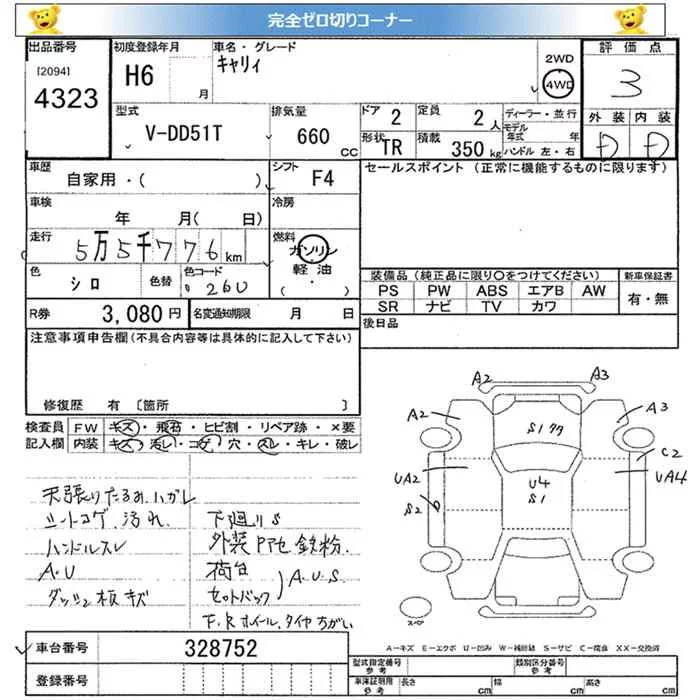 完全ゼロ切りコーナー
出品番号
[2094]
4323
初度登録年月
H6
月
車名・グレード
キャリィ
2WD
4WD
評価点
3
外装 内装
D D
型式
V-DD51T
排気量
660
CC
ドア 2
定員 2 人
形状 TR
積載 350 kg
ディーラー・並行
モデル年式 年
ハンドル 左・右
車歴
自家用・( )
シフト F4
セールスポイント (正常に機能するものに限ります)
車検
年 月( 日)
冷房
走行
5万5千776km
燃料
ガソリン
軽油
・( )
色
シロ
色替
色コード
26U
装備品(純正品に限り○をつけてください)
新車保証書
PS PW ABS エアB AW
SR ナビ TV カワ
有・無
R券 3,080 円
名変通知期限 月 日
後日品
注意事項申告欄(不具合内容等は具体的に記入して下さい)
修復歴 有 [箇所 ]
検査員記入欄
FW キズ・飛石・ヒビ割・リペア跡・×要
内装 キズ・汚レ・コゲ・穴・スレ・キレ・破レ
天張りたるみ、ハガレ
シートコゲ、汚れ、
ハンドルスレ
A・U
ダッシュ板キズ
下廻りS
外装Pセ 鉄粉、
荷台
セットバック
A・U・S
F、Rホイール、タイヤちがい
A2
A3
A2
A3
S1
UA2
U4
S1
C2
UA4
S2
スペア
A－キズ E－エクボ U－凹み W－補修跡 S－サビ C－腐食 XX－交換済
車台番号 328752
登録番号
型式指定番号
参考
類別区分番号
参考
車庫証明用
参考
長さ cm
幅 cm
高さ cm